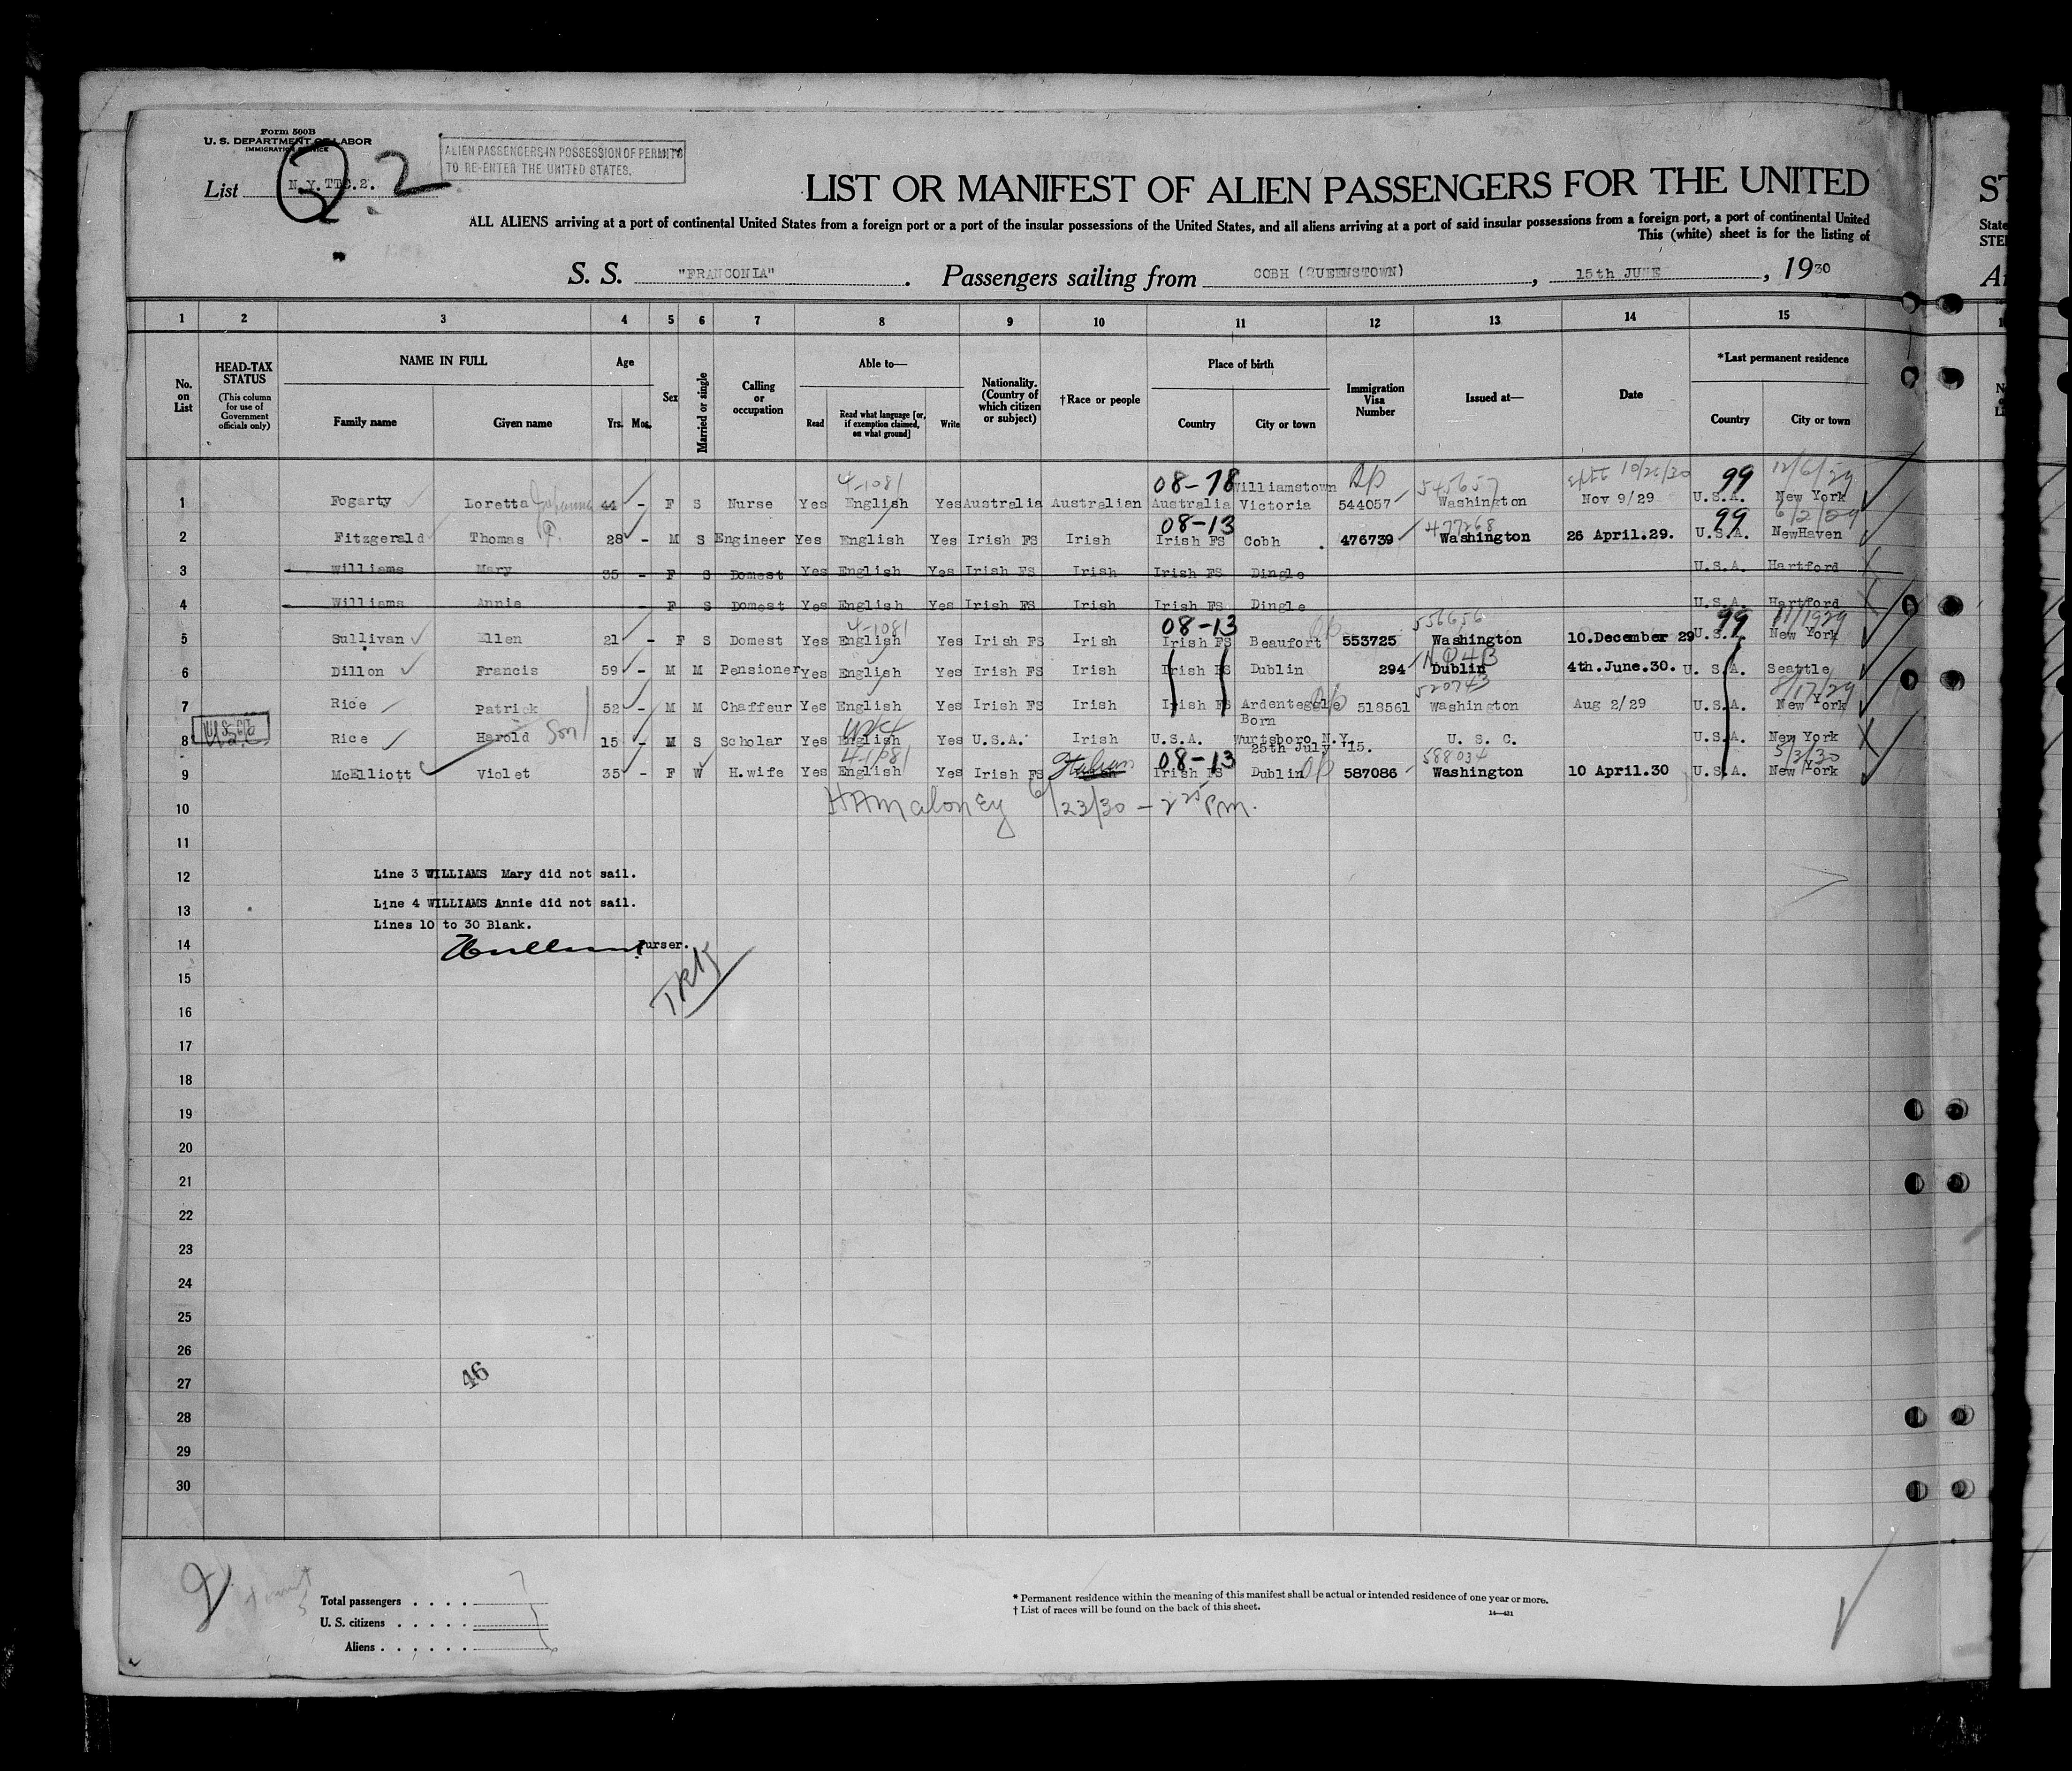 Form 500B
U. S. DEPARTMENT OF LABOR
IMMIGRATION SERVICE
ALIEN PASSENGERS IN POSSESSION OF PERMITS
TO RE-ENTER THE UNITED STATES.
List N.Y.TTC.2. 2
LIST OR MANIFEST OF ALIEN PASSENGERS FOR THE UNITED
ALL ALIENS arriving at a port of continental United States from a foreign port or a port of the insular possessions of the United States, and all aliens arriving at a port of said insular possessions from a foreign port, a port of continental United
This (white) sheet is for the listing of
S. S. "FRANCONIA". Passengers sailing from COBH (QUEENSTOWN), 15th JUNE, 1930
1 2 3 4 5 6 7 8 9 10 11 12 13 14 15
No. on List
HEAD-TAX STATUS (This column for use of Government officials only)
NAME IN FULL Family name Given name
Age Yrs. Mos.
Sex
Married or single
Calling or occupation
Able to— Read Read what language [or, if exemption claimed, on what ground] Write
Nationality. (Country of which citizen or subject)
†Race or people
Place of birth Country City or town
Immigration Visa Number
Issued at—
Date
*Last permanent residence Country City or town
4-1081 08-78 545657 10/26/30 99 12/6/29
1 Fogarty Loretta 44 - F S Nurse Yes English Yes Australia Australian Australia Williamstown Victoria 544057 Washington Nov 9/29 U.S.A. New York
08-13 477268 99 6/2/29
2 Fitzgerald Thomas P. 28 - M S Engineer Yes English Yes Irish FS Irish Irish FS Cobh . 476739 Washington 26 April.29. U.S.A. NewHaven
3 Williams Mary 35 - F S Domest Yes English Yes Irish FS Irish Irish FS Dingle U.S.A. Hartford
4 Williams Annie F S Domest Yes English Yes Irish FS Irish Irish FS Dingle U.S.A. Hartford
4-1081 08-13 556656 99
5 Sullivan Ellen 21 - F S Domest Yes English Yes Irish FS Irish Irish FS Beaufort 553725 Washington 10.December 29 U.S.A. New York
6 Dillon Francis 59 - M M Pensioner Yes English Yes Irish FS Irish Irish FS Dublin 294 Dublin 4th.June.30. U. S.A. Seattle
520743 8/17/29
7 Rice Patrick 52 - M M Chaffeur Yes English Yes Irish FS Irish Irish FS Ardenteggle 518561 Washington Aug 2/29 U.S.A. New York
8 Rice Harold Son 15 - M S Scholar Yes English Yes U.S.A. Irish U.S.A. Born Wurtsboro N.Y. 25th July '15. U. S. C. U.S.A. New York
08-13 588034 5/3/30
9 McElliott Violet 35 - F W H.wife Yes English Yes Irish FS Irish FS Dublin 587086 Washington 10 April.30 U.S.A. New York
10 HAMaloney 6/23/30 - 2 25 Pm.
11
12 Line 3 WILLIAMS Mary did not sail.
13 Line 4 WILLIAMS Annie did not sail.
Lines 10 to 30 Blank.
14 Purser.
15
16
17
18
19
20
21
22
23
24
25
26
27 46
28
29
30
Total passengers . . . . 7
U. S. citizens . . . . .
Aliens . . . . . .
* Permanent residence within the meaning of this manifest shall be actual or intended residence of one year or more.
† List of races will be found on the back of this sheet.
14—431